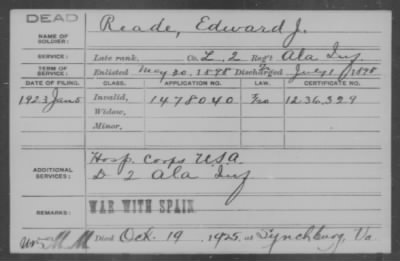 DEAD
NAME OF SOLDIER: Reade, Edward J.
SERVICE: Late rank, Co. L, 2 Reg't Ala Inf
TERM OF SERVICE: Enlisted May 20, 1898 Discharged July 1, 1898
DATE OF FILING. CLASS. APPLICATION NO. LAW. CERTIFICATE NO.
1923 Jan 5 Invalid, 1478040 1236329
Widow,
Minor,
ADDITIONAL SERVICES: Hosp. Corps USA.
D 2 Ala Inf
REMARKS: WAR WITH SPAIN
Died Oct. 19, 1925, at Lynchburg, Va.